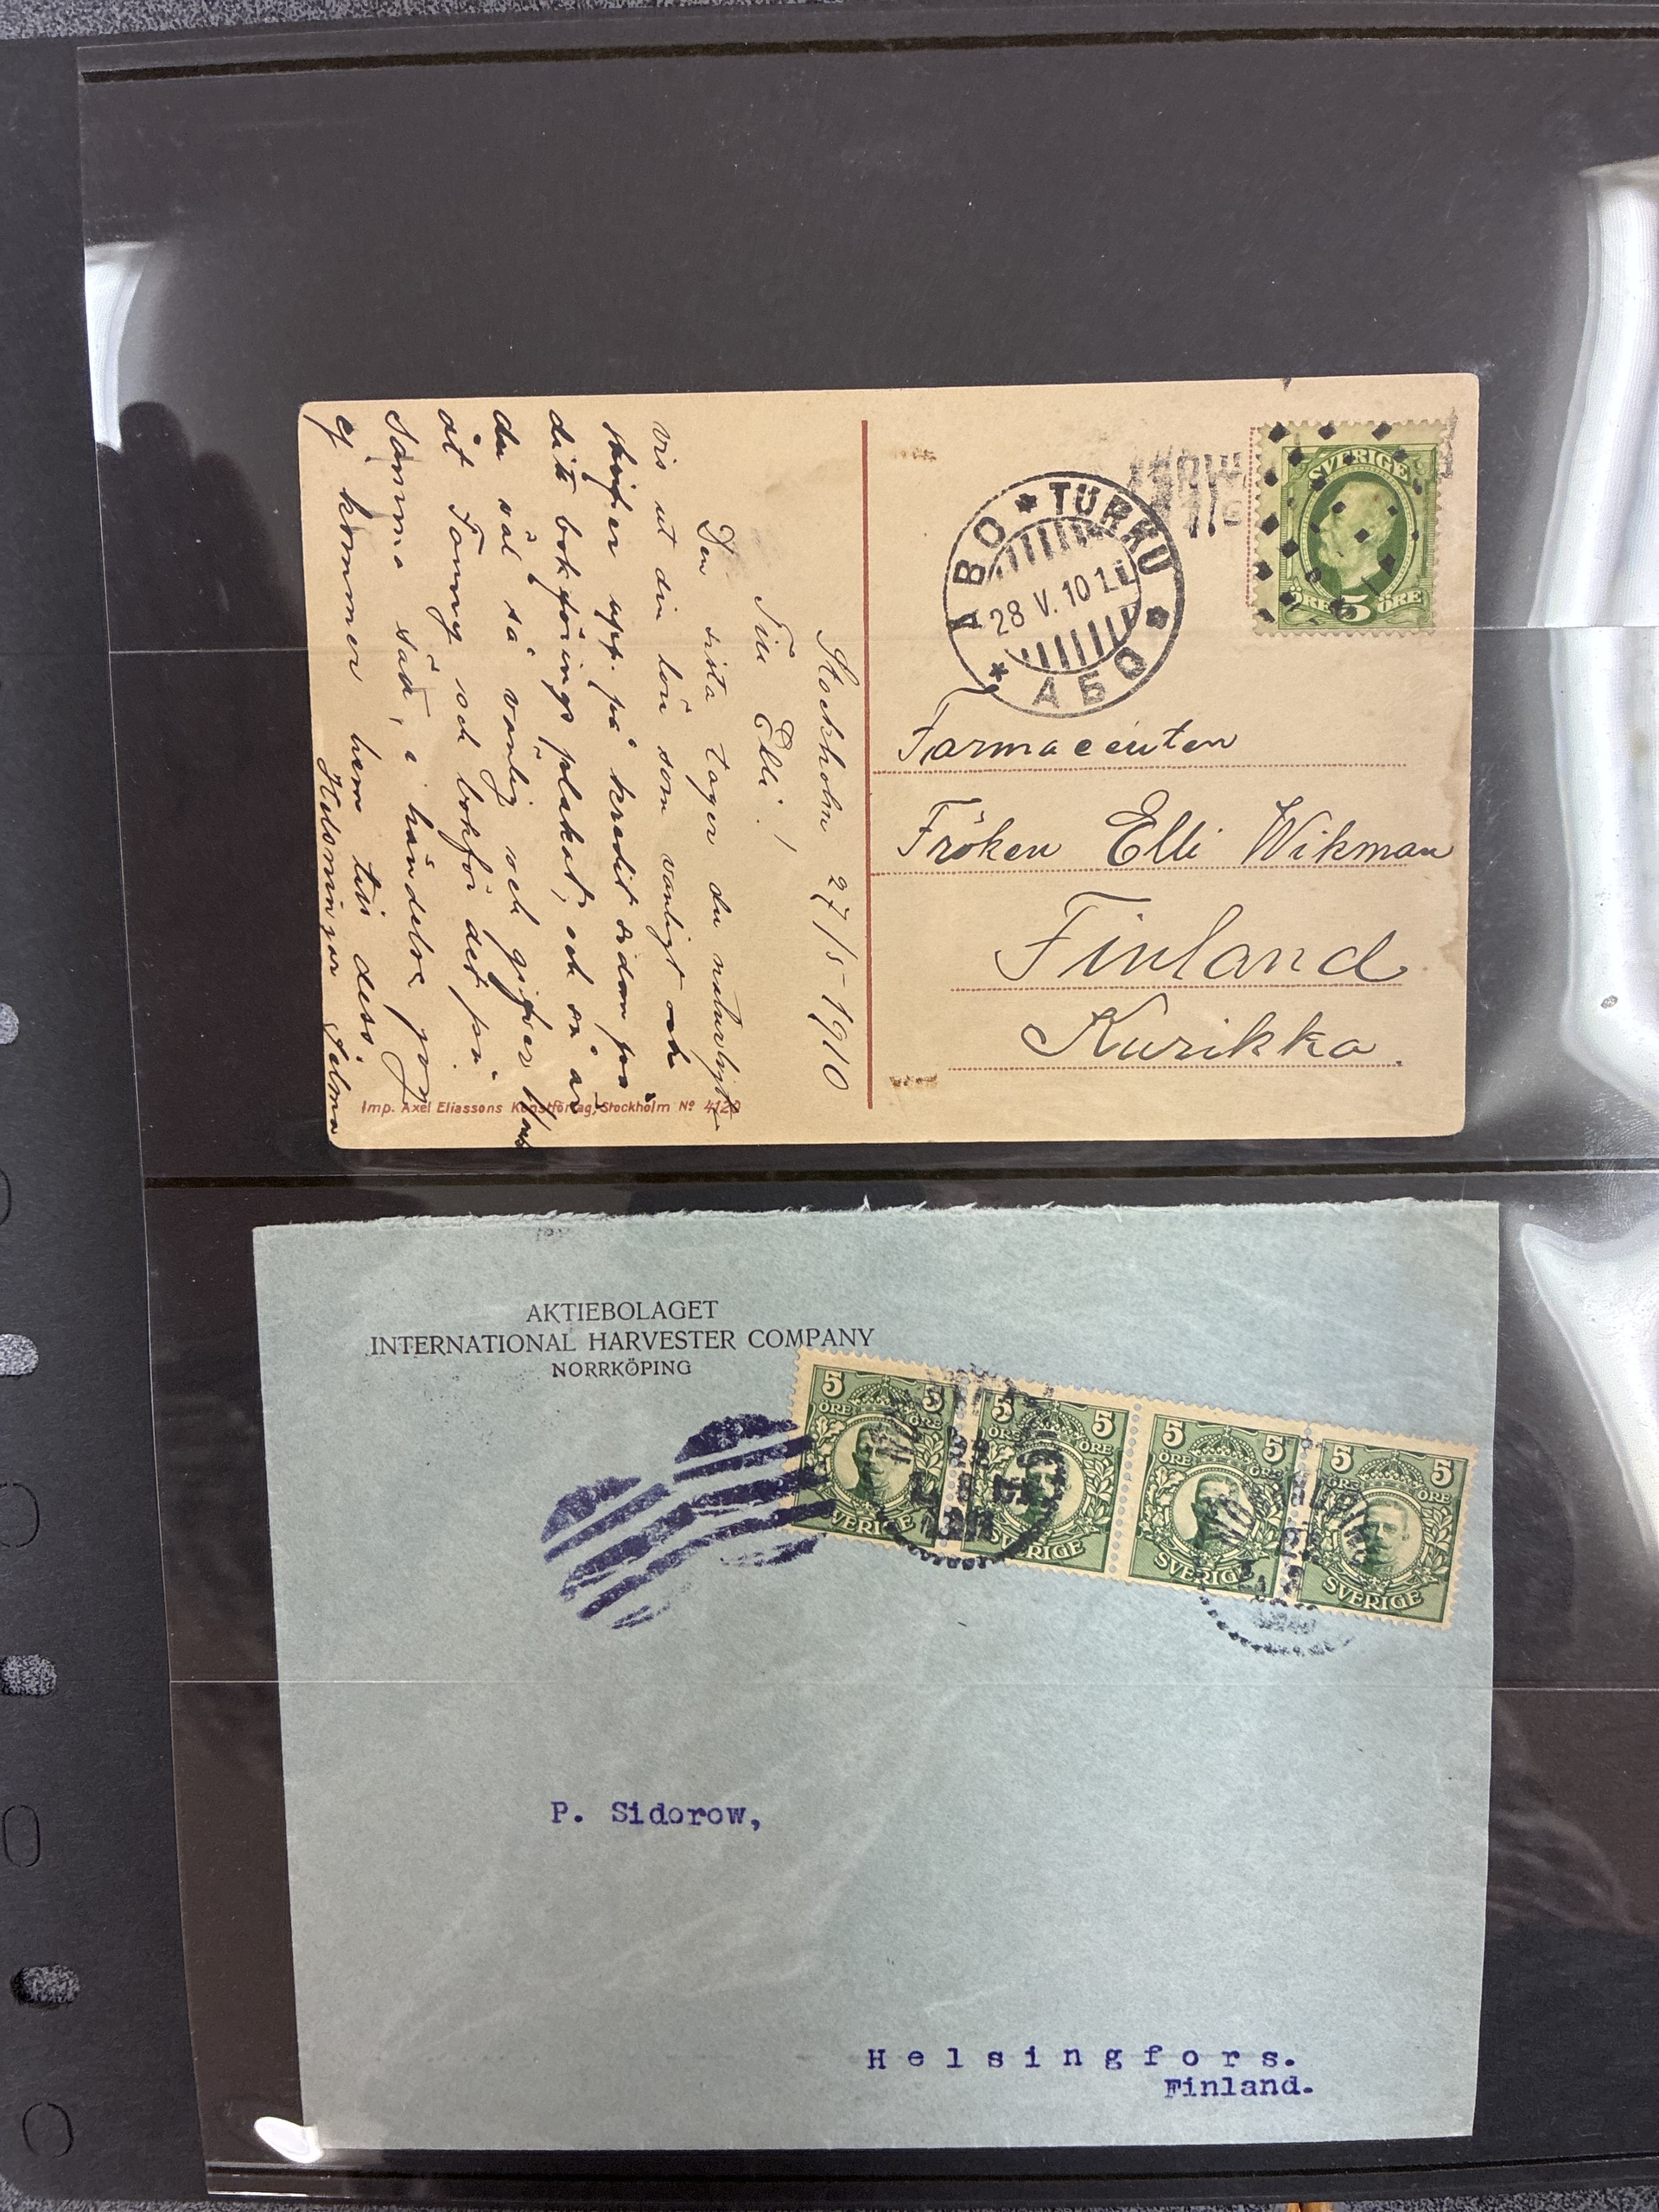 Stockholm 27/5-1910
Elli!
Den sista tager du naturligt-
vis ut din lön som vanligt och
skrifver upp på kredit sidan på
ditt bokförings plakat, och så är
du väl så vänlig och gifver
åt Fanny och bokför det på
samma sätt, i händelse jag
ej kommer hem till dess.
Hälsningar
Imp. Axel Eliassons Konstförlag, Stockholm Nº 4120
SVERIGE
ÖRE 5 ÖRE
ÅBO * TURKU * АБО *
28 V. 10
Farmaceuten
Fröken Elli Wikman
Finland
Kurikka.
AKTIEBOLAGET
INTERNATIONAL HARVESTER COMPANY
NORRKÖPING
5 ÖRE 5 ÖRE SVERIGE
5 ÖRE 5 ÖRE SVERIGE
5 ÖRE 5 ÖRE SVERIGE
5 ÖRE 5 ÖRE SVERIGE
P. Sidorow,
Helsingfors.
Finland.